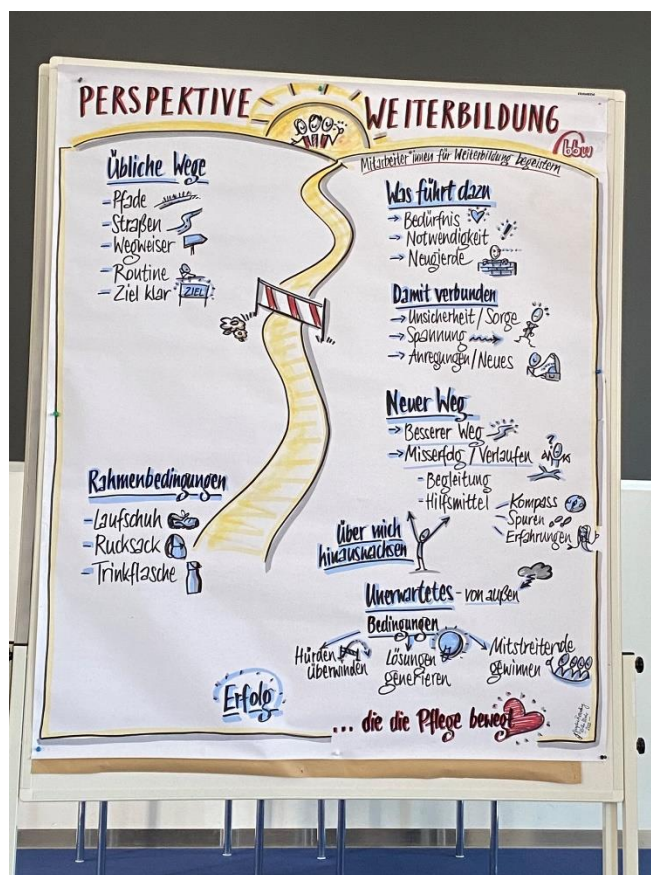 PERSPEKTIVE WEITERBILDUNG
bbw
Mitarbeiter*innen für Weiterbildung begeistern
Übliche Wege
- Pfade
- Straßen
- Wegweiser
- Routine
- Ziel klar ZIEL
Rahmenbedingungen
- Laufschuh
- Rucksack
- Trinkflasche
Erfolg
Was führt dazu
→ Bedürfnis
→ Notwendigkeit
→ Neugierde
Damit verbunden
→ Unsicherheit / Sorge
→ Spannung
→ Anregungen / Neues
Neuer Weg
→ Besserer Weg
→ Misserfolg / Verlaufen
- Begleitung
- Hilfsmittel
- Kompass
- Spuren
- Erfahrungen
über mich
hinauswachsen
Unerwartetes - von außen
Bedingungen
Hürden
überwinden
Lösungen
generieren
Mitstreitende
gewinnen
... die die Pflege bewegt